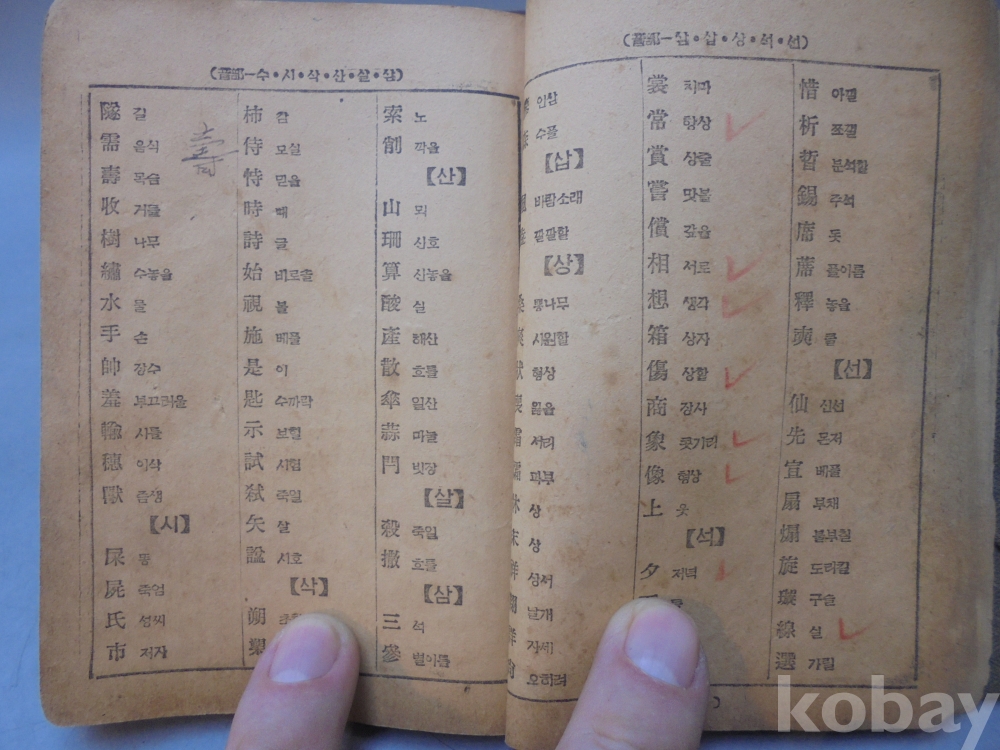 (部一수·시·삭·산·살·삼)
隧 길
需 음식
壽 목숨
收 거둘
樹 나무
繡 수놓을
水 물
手 손
帥 장수
羞 부끄러울
輸 사를
穗 이삭
獸 즘생
【시】
屎 똥
屍 죽엄
氏 성씨
市 저자
柿 감
侍 모실
恃 믿을
時 때
詩 글
始 비로솔
視 볼
施 베풀
是 이
匙 수까락
示 보일
試 시험
弑 죽일
矢 살
諡 시호
【삭】
朔
壽
索 노
削 깍을
【산】
山 뫼
珊 산호
算 산놓을
酸 실
產 해산
散 흐틀
傘 일산
蒜 마늘
閂 빗장
【살】
殺 죽일
撒 흐틀
【삼】
三 석
參 별이름
(部一삼·삽·상·석·선)
인삼
수풀
【삽】
바람소래
깔깔할
【상】
뽕나무
시원할
형상
잃을
서리
과부
상
상
상서
날개
자세
오히려
裳 치마
常 항상
賞 상줄
嘗 맛볼
償 갚을
相 서로
想 생각
箱 상자
傷 상할
商 장사
象 콧기리
像 형상
上 웃
【석】
夕 저녁
惜 아낄
析 쪼갤
晳 분석할
錫 주석
席 돗
蓆 풀이름
釋 놓을
奭 클
【선】
仙 신선
先 몬저
宣 베플
扇 부채
煽 불부칠
旋 도리킬
璇 구슬
線 실
選 가릴
kobay